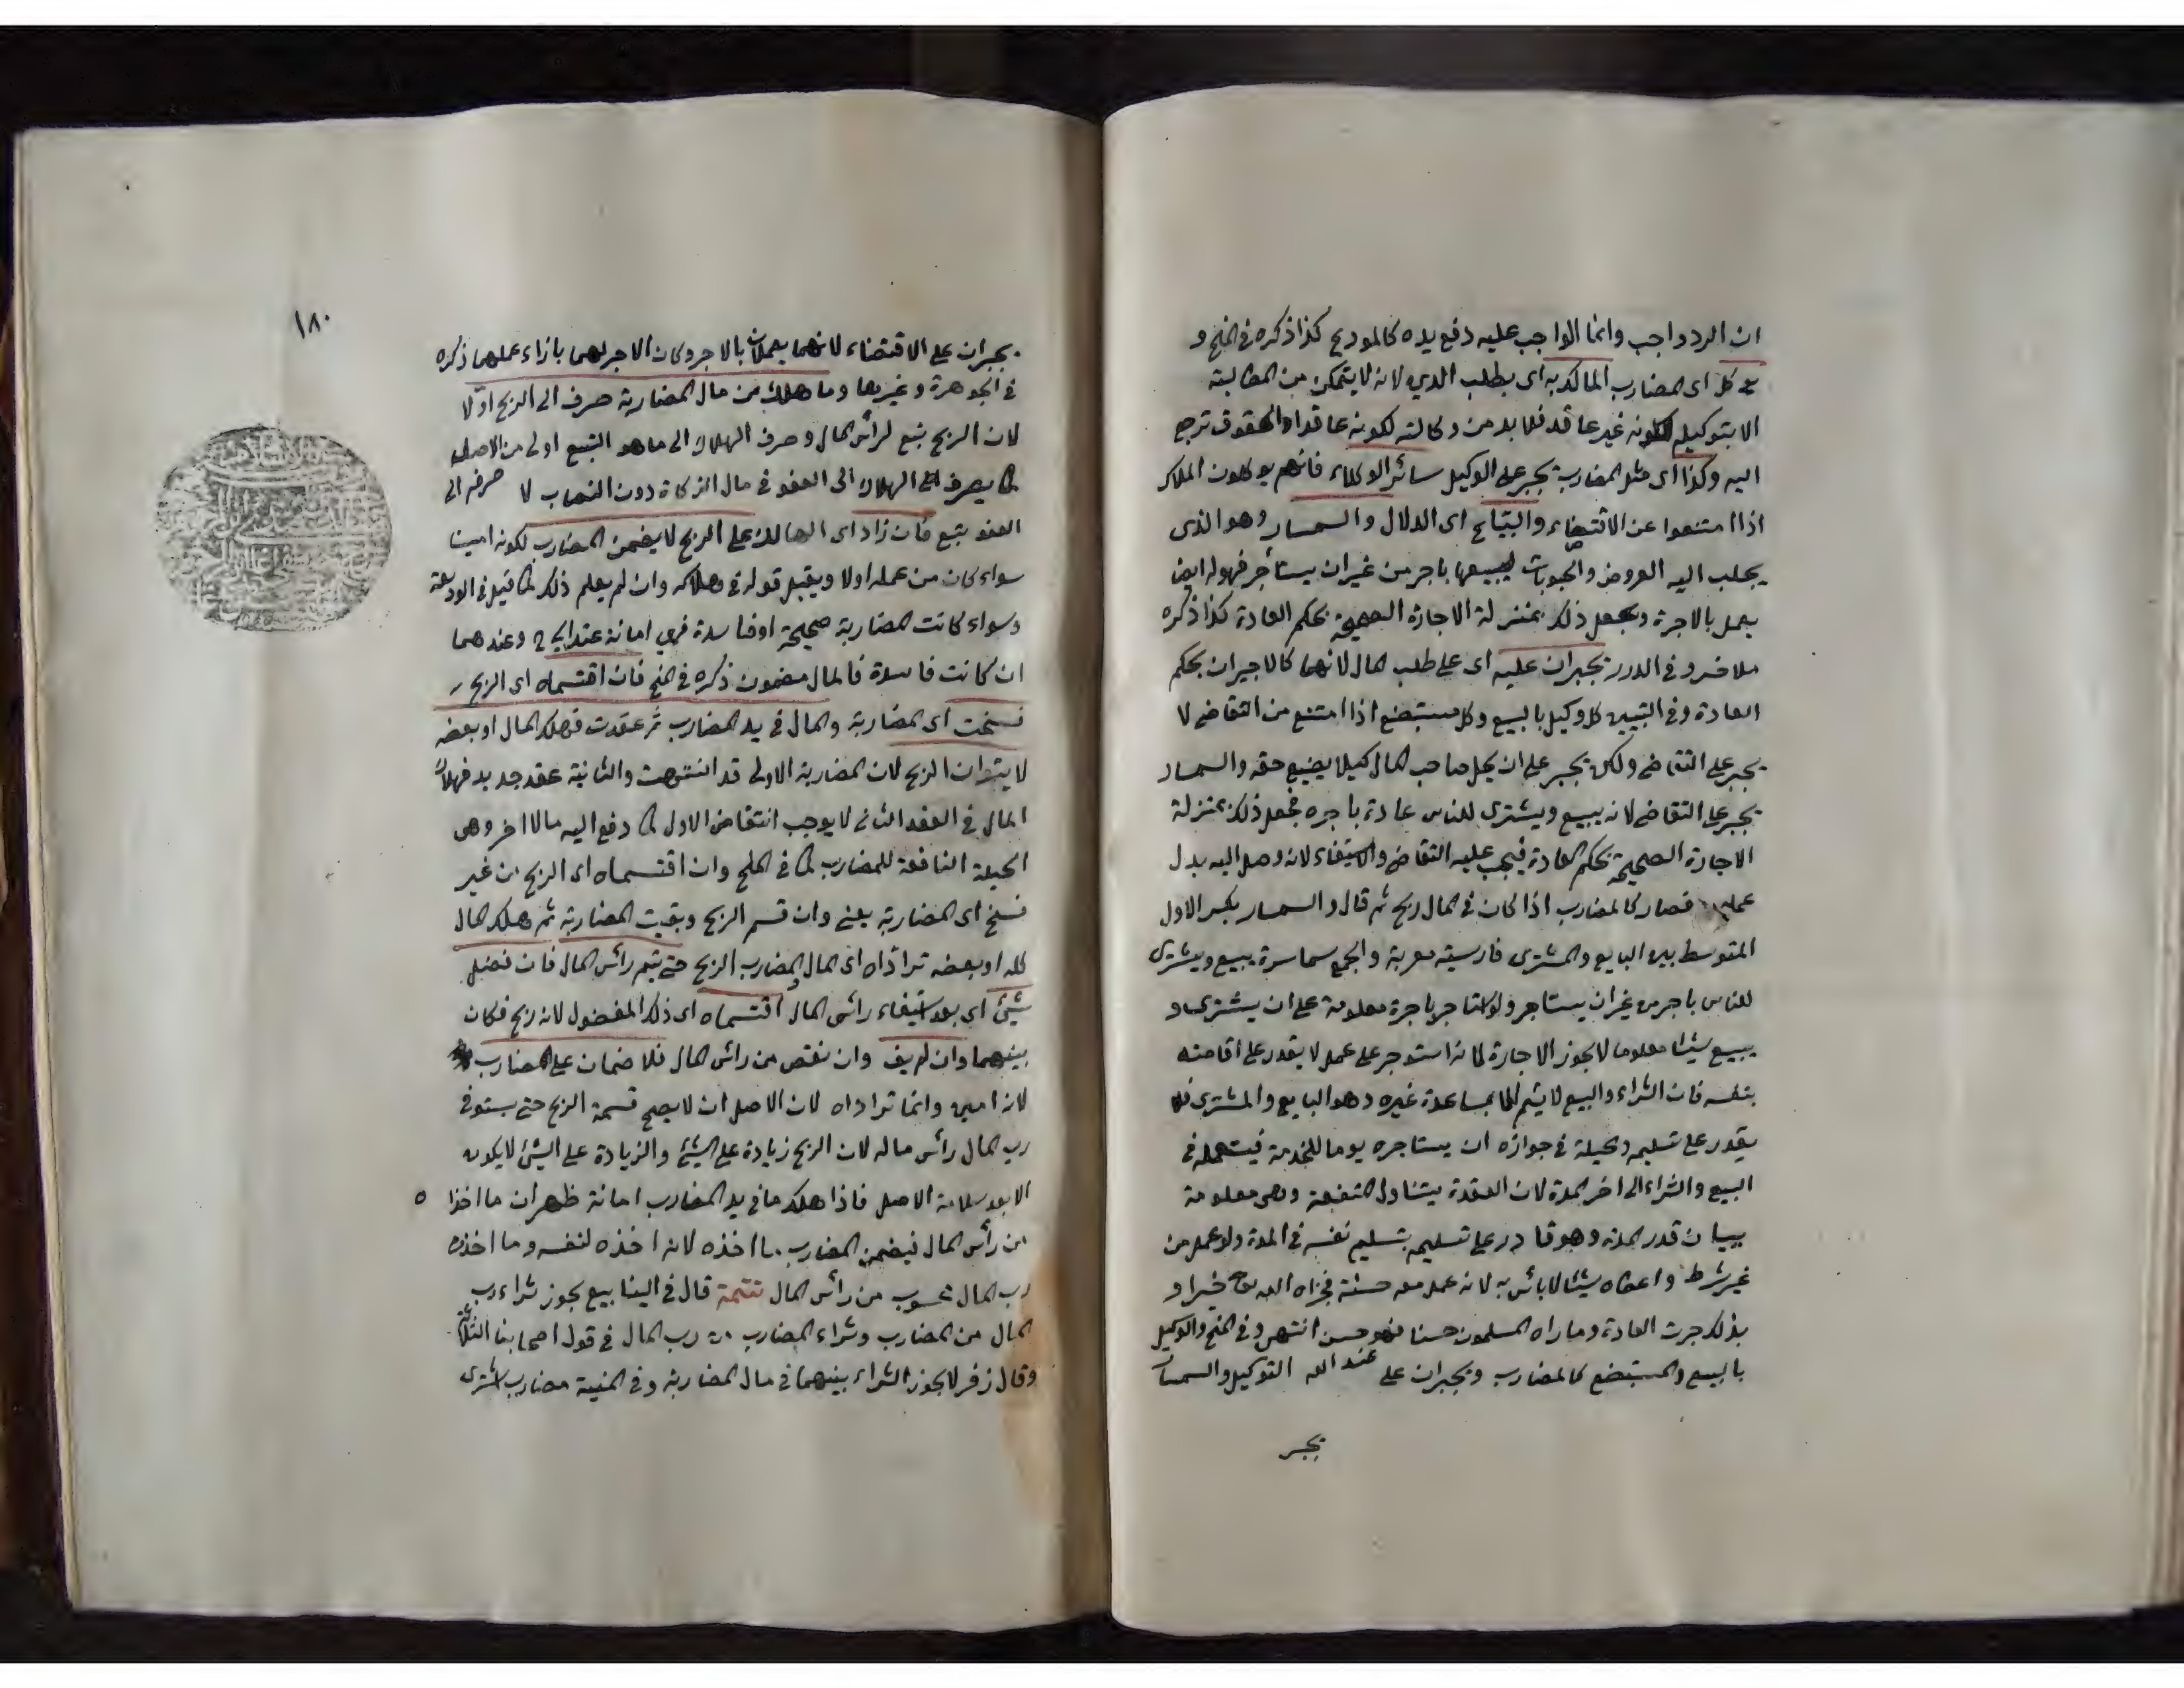 ان الرد واجب وانما الواجب عليه دفع يده كالمودع كذا ذكره في المنح و
كل اى المضارب المالك به اى بطلب الدين لانه لا يتمكن من المطالبة
الا بتوكيله لكونه غير عاقد فلا بد من وكالته لكونه عاقدا والحقوق ترجع
اليه وكذا اى مثل المضارب يجبر على الوكيل سائر الوكلاء فانهم يوكلون الملاك
اذا امتنعوا عن الاقتضاء والبياع اى الدلال والسمسار وهو الذى
يجلب اليه العروض والحبوبات ليبيعها باجر من غير ان يستأجر فهو له ايضا
يعمل بالاجرة وتجعل ذلك بمنزلة الاجارة الصحيحة بحكم العادة كذا ذكره
ملا خسرو في الدرر يجبران عليه اى على طلب المال لانهما كالاجيران بحكم
العادة وفي التبيين كل وكيل بالبيع وكل مستبضع اذا امتنع من التقاضى لا
يجبر على التقاضى ولكن يجبر على ان يحيل صاحب المال كيلا يضيع حقه والسمسار
يجبر على التقاضى لانه يبيع ويشترى للناس عادة باجره فجعل ذلك بمنزلة
الاجارة الصحيحة بحكم العادة فيجب عليه التقاضى والاستيفاء لانه وصل اليه بدل
عمله فصار كالمضارب اذا كان في المال ربح ثم قال والسمسار بكسر الاول
المتوسط بين البايع والمشترى فارسية معربة والجمع سماسرة يبيع ويشترى
للناس باجر من غير ان يستاجر ولو استاجر باجرة معلومة على ان يشترى او
يبيع شيئا معلوما لا يجوز الاجارة لانه استوجر على عمل لا يقدر على اقامته
بنفسه فان الشراء والبيع لا يتم الا بمساعدة غيره وهو البايع والمشترى فلا
يقدر على تسليمه والحيلة في جوازه ان يستاجره يوما للخدمة فيستعمله في
البيع والشراء الى اخر المدة لان العقدة يتناول المنفعة وهى معلومة
ببيان قدر المدة وهو قادر على تسليمه بتسليم نفسه في المدة ولو عمل من
غير شرط واعطاه شيئا لا بأس به لانه عمل معه حسنة فجزاه الله تعالى خيرا و
بذلك جرت العادة وما راه المسلمون حسنا فهو حسن انتهى وفي المنح والوكيل
بالبيع والمستبضع كالمضارب ويجبران على عند الله التوكيل والسمسار
يجبر
١٨٠
يجبران على الاقتضاء لانهما يعملان بالاجر وكان الاجر لهما بازاء عملهما ذكره
في الجوهرة وغيرها وما هلك من مال المضاربة صرف الى الربح اولا
لان الربح تبع لرأس المال وصرف الهلاك الى ما هو التبع اولى من الاصل
كما يصرف الهلاك الى العفو في مال الزكاة دون النصاب لا صرفه الى
العفو تبع فان زاد اى الهالك على الربح لا يضمن المضارب لكونه امينا
سواء كان من عمله اولا ويقبل قوله في هلاكه وان لم يعلم ذلك كما قيل في الوديعة
وسواء كانت المضاربة صحيحة او فاسدة فهي امانة عند ابي ح وعندهما
ان كانت فاسدة فالمال مضمون ذكره في المنح فان اقتسماه اى الربح
فسخت اى المضاربة والمال في يد المضارب ثم عقدت فهلك المال او بعضه
لا يترادان الربح لان المضاربة الاولى قد انتهت والثانية عقد جديد فهلاك
المال في العقد الثانى لا يوجب انتقاض الاول كما دفع اليه مالا اخر وهى
الحيلة النافعة للمضارب كما في المنح وان اقتسماه اى الربح من غير
فسخ اى المضاربة يعنى وان قسم الربح وبقيت المضاربة ثم هلك المال
كله او بعضه ترادّاه اى المال والمضارب الربح حتى يتم رأس المال فان فضل
شيئ اى بعد استيفاء رائس المال اقتسماه اى ذلك المفضول لانه ربح فكان
بينهما وان لم يف وان نقص من رائس المال فلا ضمان على المضارب
لانه امين وانما تراداه لان الاصل ان لا يصح قسمة الربح حتى يستوفى
رب المال رأس ماله لان الربح زيادة على الشيئ والزيادة على الشيئ لا يكون
الا بعد سلامة الاصل فاذا هلك ما في يد المضارب امانة ظهر ان ما اخذا
من رأس المال فيضمن المضارب ما اخذه لانه اخذه لنفسه وما اخذه
رب المال محسوب من رأس المال تتمة قال في الينابيع يجوز شراء رب
المال من المضارب وشراء المضارب من رب المال في قول اصحابنا الثلاثة
وقال زفر لا يجوز الشراء بينهما في مال المضاربة وفي المنية مضارب اشترى